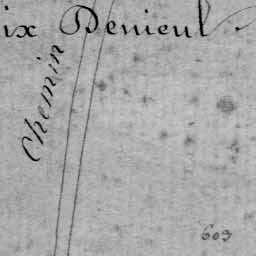 ix Denieul
Chemin
609